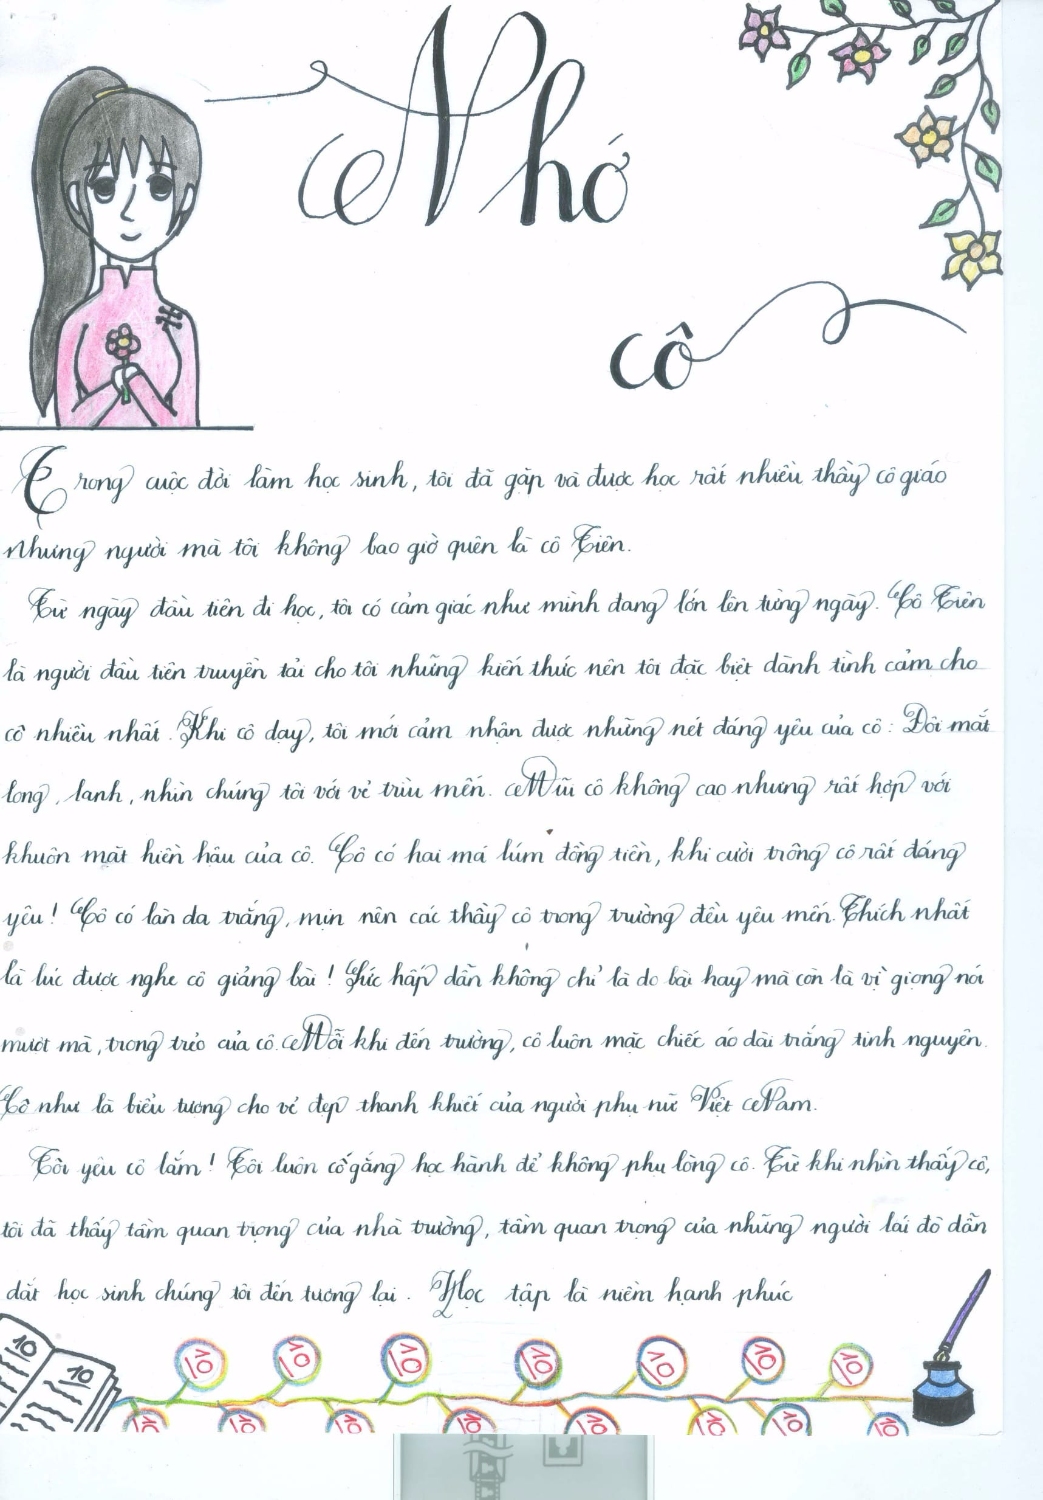 Nhớ
cô
Trong cuộc đời làm học sinh, tôi đã gặp và được học rất nhiều thầy cô giáo
nhưng người mà tôi không bao giờ quên là cô Tiên.
Từ ngày đầu tiên đi học, tôi có cảm giác như mình đang lớn lên từng ngày. Cô Tiên
là người đầu tiên truyền tải cho tôi những kiến thức nên tôi đặc biệt dành tình cảm cho
cô nhiều nhất. Khi cô dạy, tôi mới cảm nhận được những nét đáng yêu của cô: Đôi mắt
long, lanh, nhìn chúng tôi với vẻ trìu mến. Mũi cô không cao nhưng rất hợp với
khuôn mặt hiền hậu của cô. Cô có hai má lúm đồng tiền, khi cười trông cô rất đáng
yêu! Cô có làn da trắng, mịn nên các thầy cô trong trường đều yêu mến. Thích nhất
là lúc được nghe cô giảng bài! Sức hấp dẫn không chỉ là do bài hay mà còn là vì giọng nói
mượt mà, trong trẻo của cô. Mỗi khi đến trường, cô luôn mặc chiếc áo dài trắng tinh nguyên.
Cô như là biểu tượng cho vẻ đẹp thanh khiết của người phụ nữ Việt Nam.
Tôi yêu cô lắm! Tôi luôn cố gắng học hành để không phụ lòng cô. Từ khi nhìn thấy cô,
tôi đã thấy tầm quan trọng của nhà trường, tầm quan trọng của những người lái đò dẫn
dắt học sinh chúng tôi đến tương lai. Học tập là niềm hạnh phúc
10 10
10 10 10 10 10 10 10
10 10 10 10 10 10 10 10